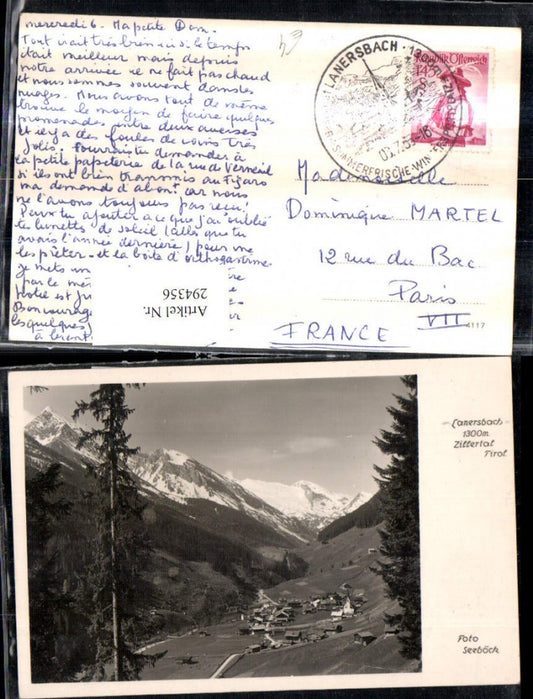 mercredi 6. Ma petite Dom.
Tout irait très bien ici si le temps
était meilleur mais depuis
notre arrivée il ne fait pas chaud
et nous sommes souvent dans les
nuages. Nous avons tout de même
trouvé le moyen de faire quelques
promenades entre deux averses
et il y a des foules de coins très
jolis. Pourrais-tu demander à
la petite papeterie de la rue de Verneuil
si ils ont bien transmis au Figaro
ma demande d'abont car nous
ne l'avons toujours pas reçu!
Peux tu ajouter à ce que j'ai oublié
tes lunettes de soleil (celles que tu
avais l'année dernière) pour me
les prêter - et la boîte d'orthogastrine.
Je mets un
par le même
hôtel est
Bon courage
les quelques
à
LANERSBACH · 1300m
SOMMERFRISCHE
Republik Österreich
Mademoiselle
Dominique MARTEL
12 rue du Bac
Paris
VII
FRANCE
4117
Artikel Nr.
294356
Lanersbach
1300m
Zillertal
Tirol
Foto
Seeböck